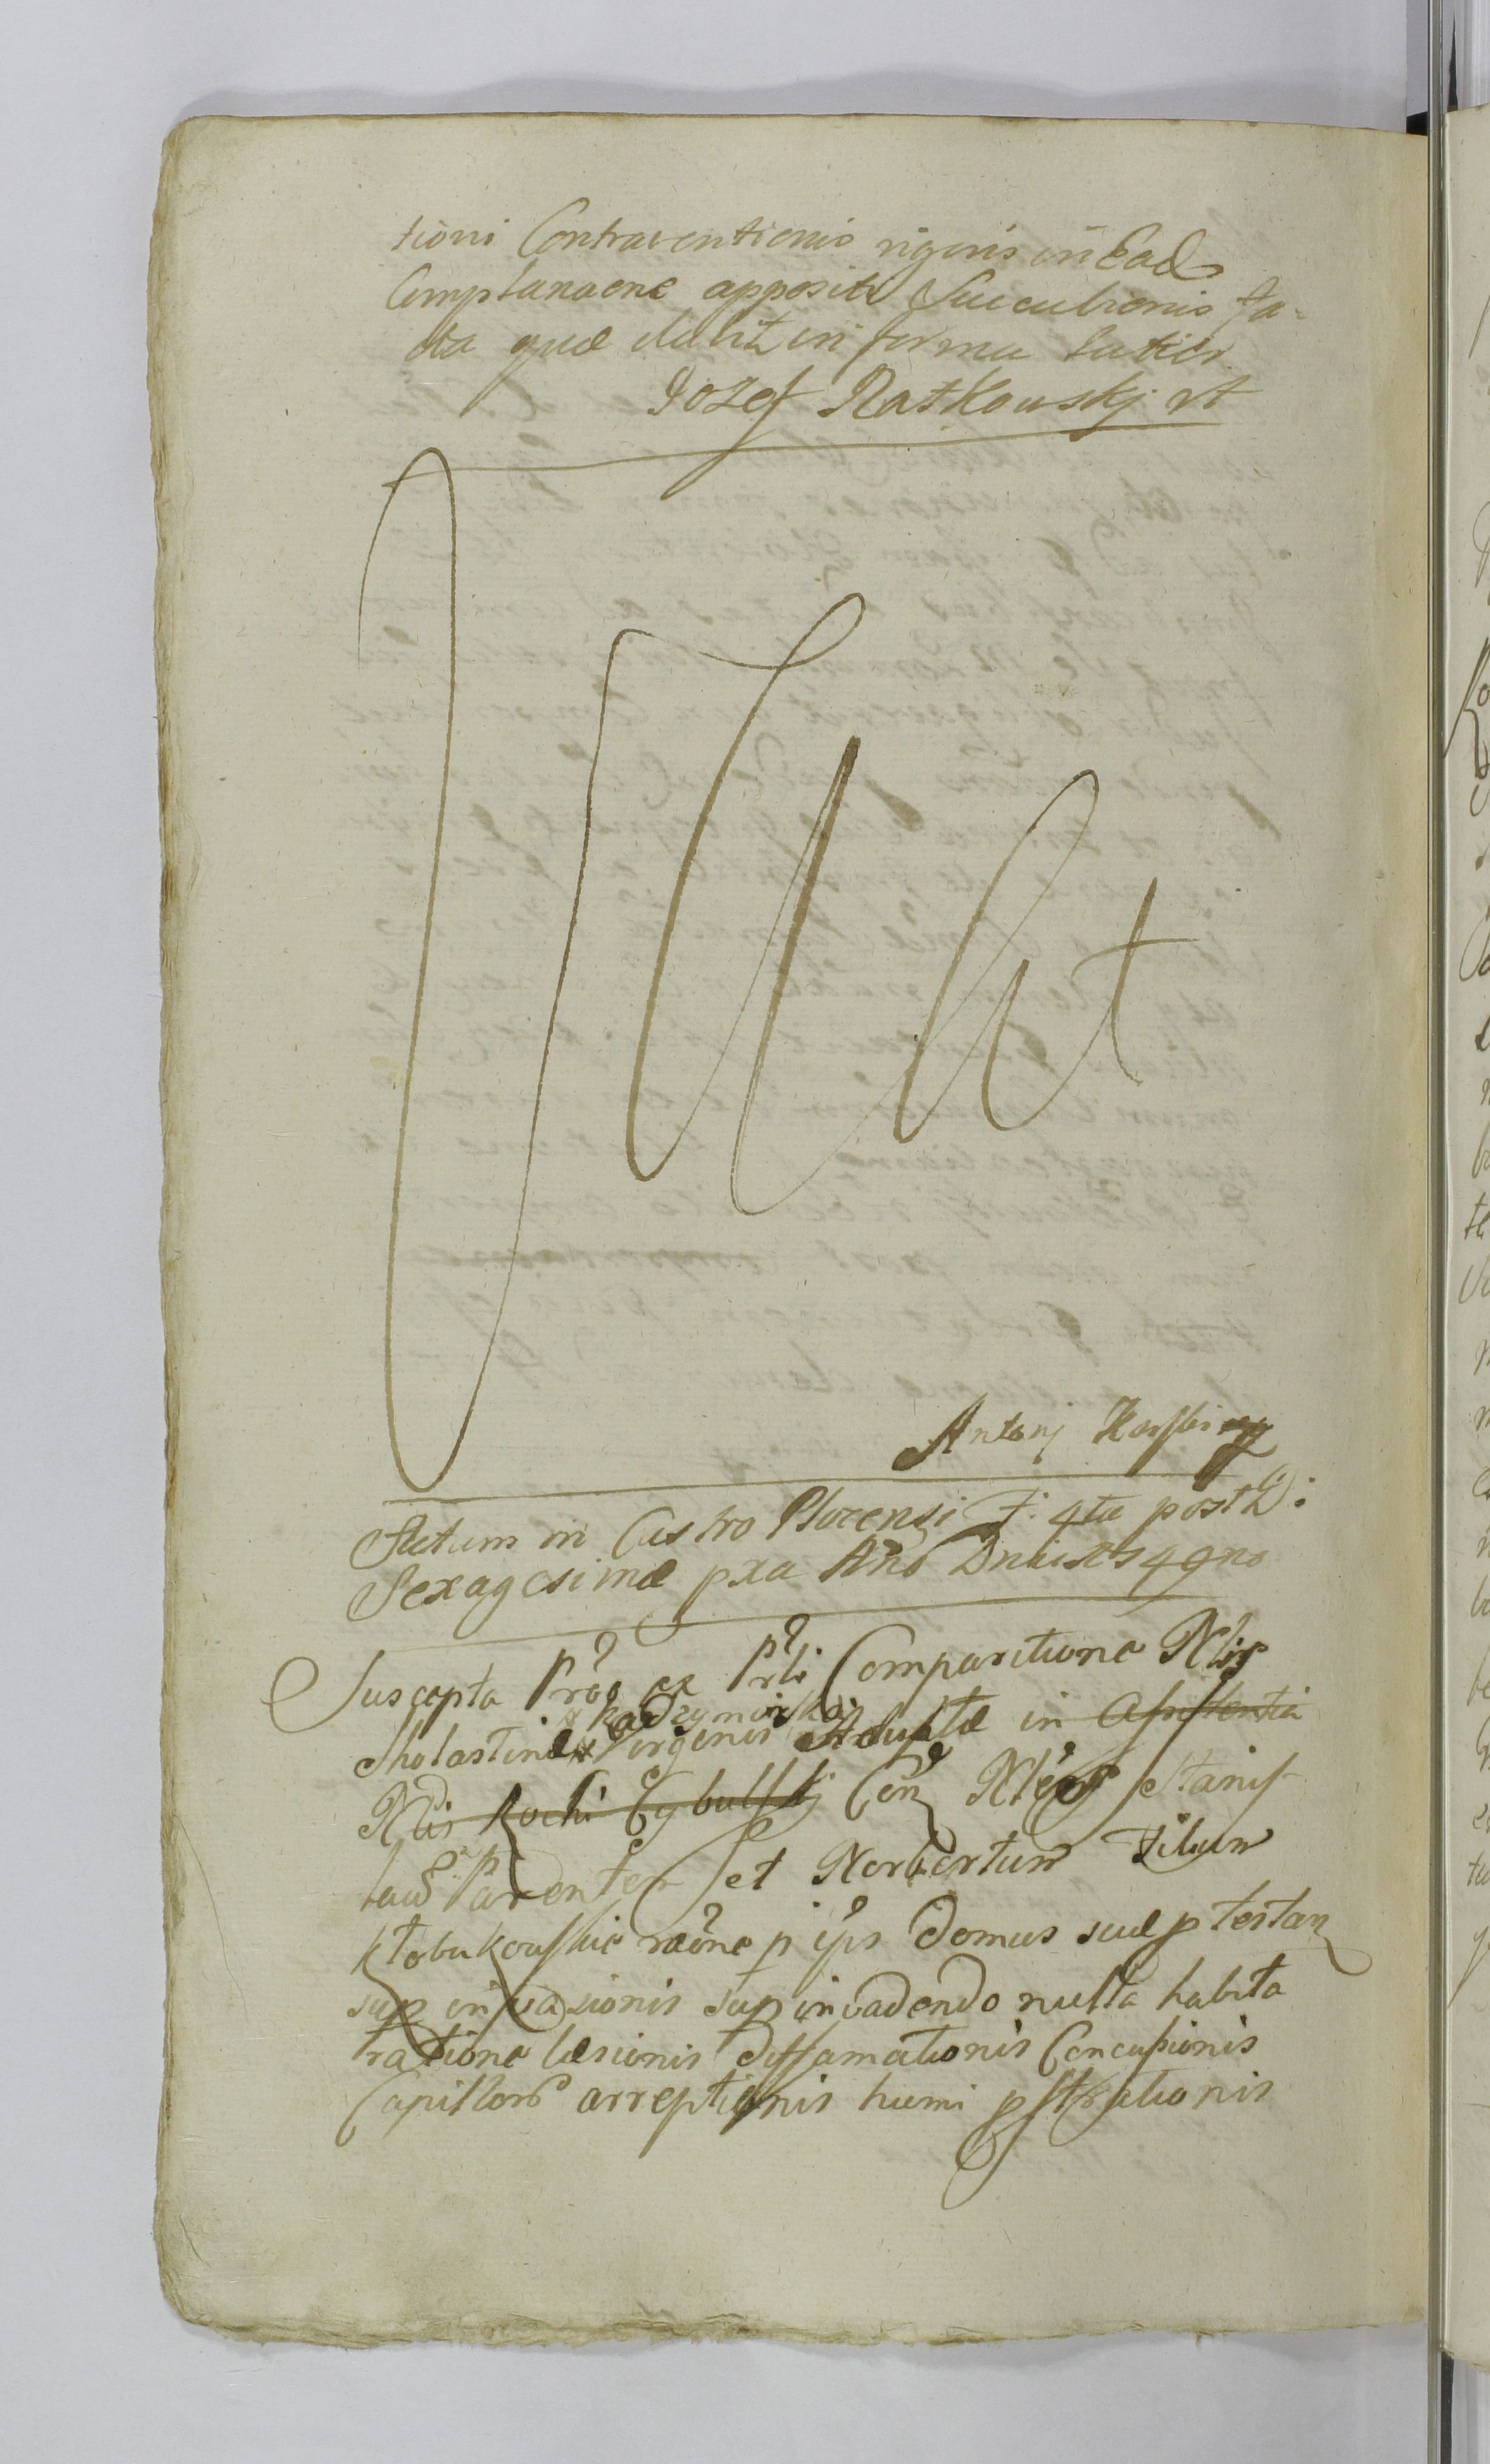 tioni Contraventionis rigoris in Ead
Complanaone appositi Succubionis fa-
cta quæ dabit in forma latior
Jozef Ratkouskj vt
Antonj
Actum in Castro Plocensi F: 4ta post D:
Sexagesimæ pxa Ano Dni 1749no
Suscepta Prœo ex Prli Comparitione Nlis
Kadzyminskij
Sholastinæ Virginis Adultæ in Assistentia
Nlis Rochi Cybulskj Con Nleos Stanis
laũ Parenter et Norbertum Filium
Kłobukouskie raõne p ips domus suæ p testan
sup invasionis sup invadendo nulla habita
ratione læsionis diffamationis Concussionis
Capillorũ arreptionis humi pstrationis